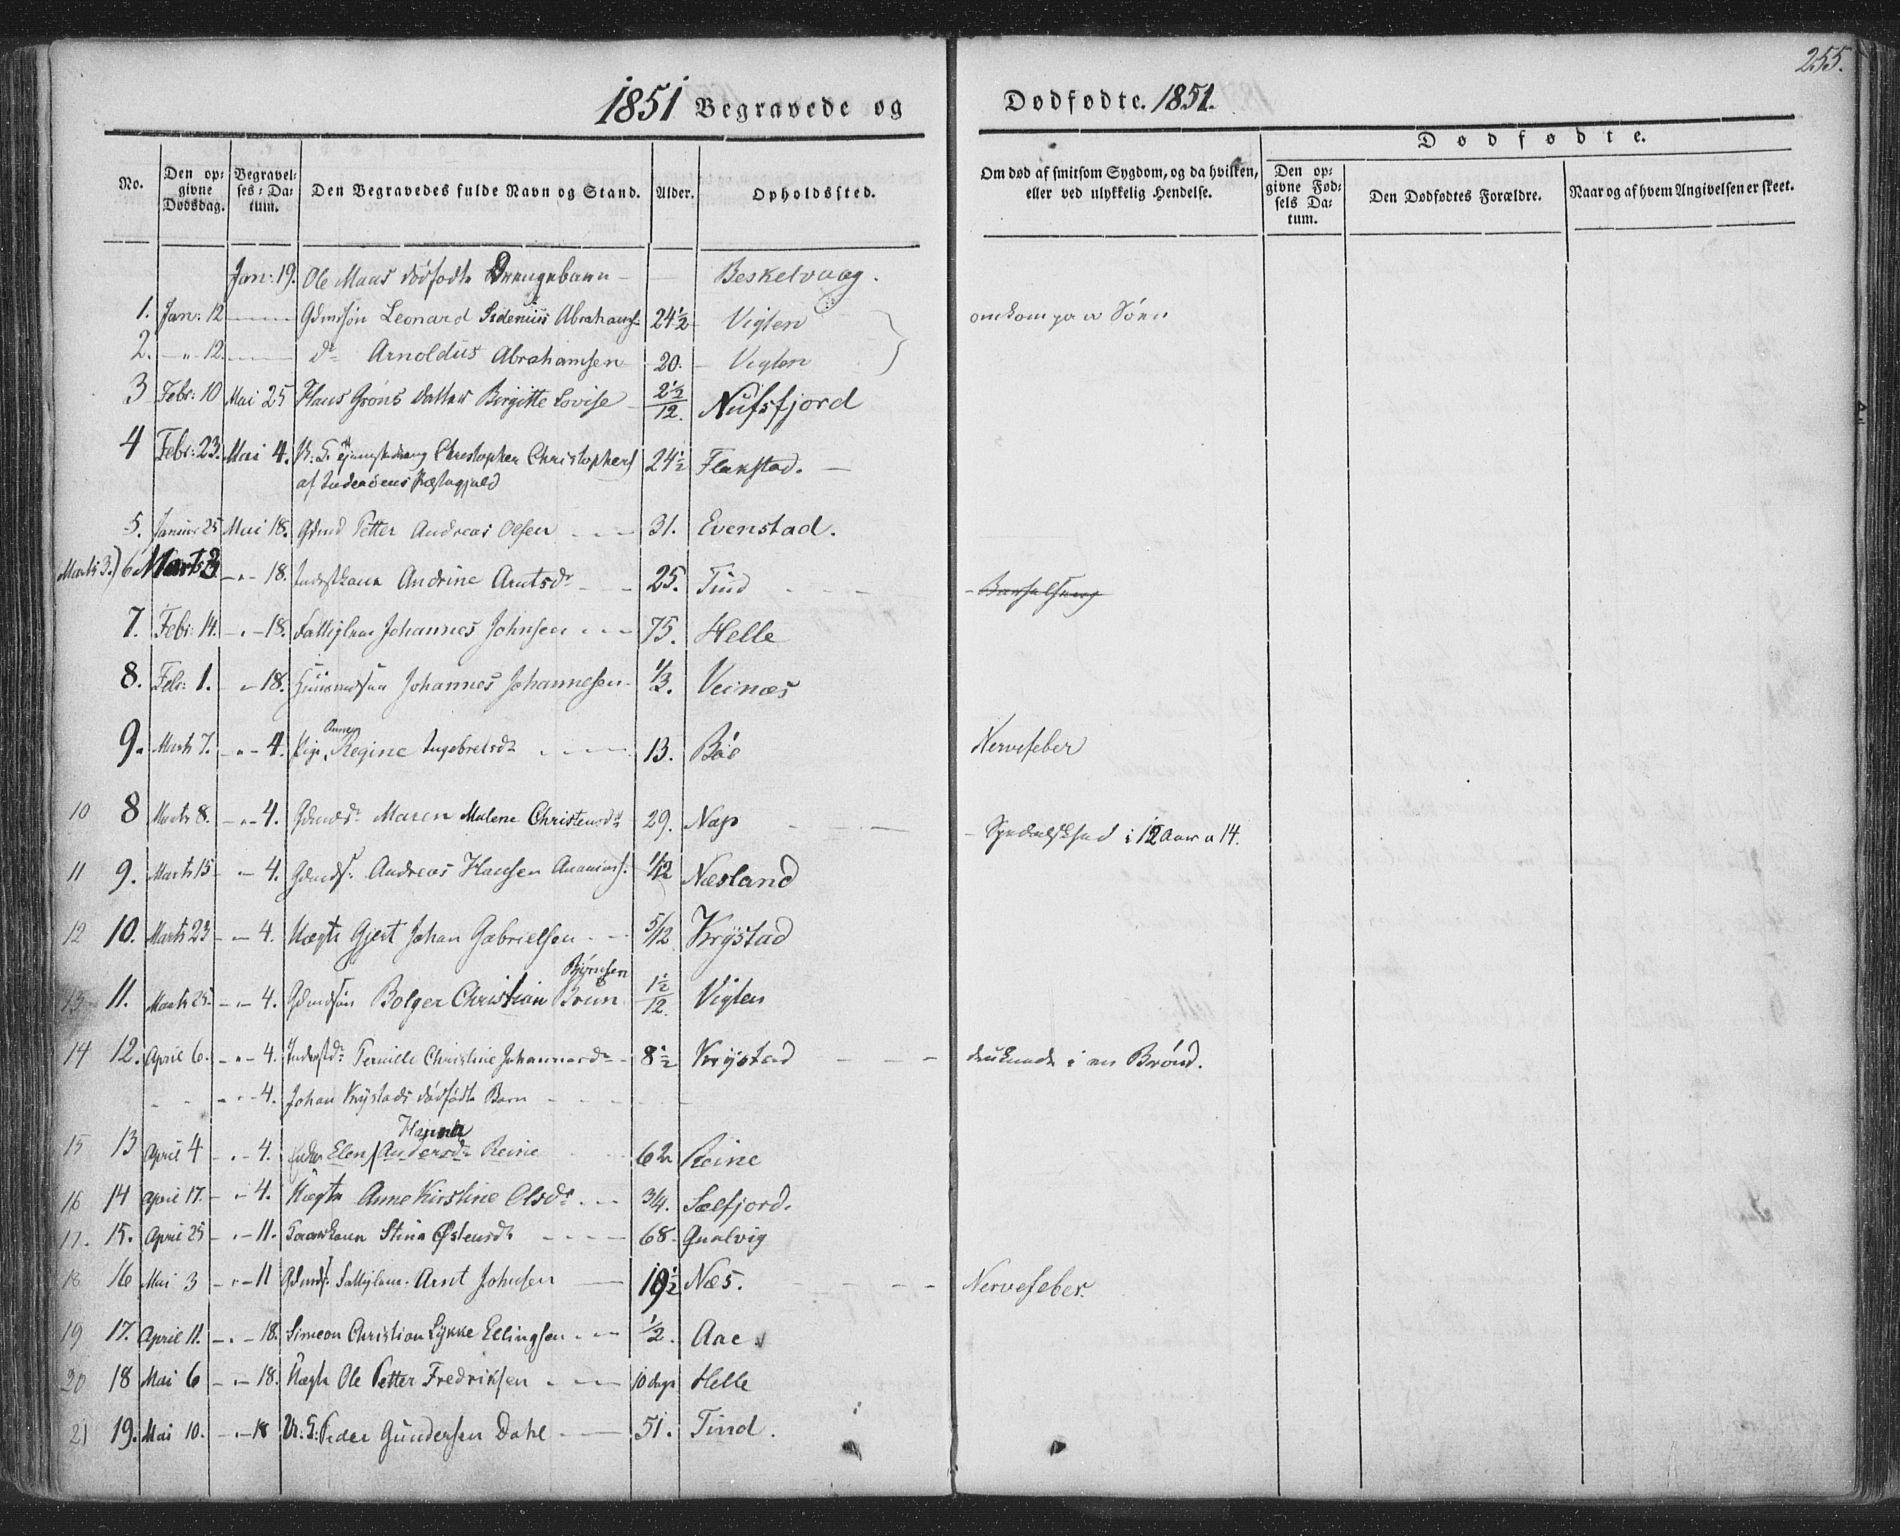 255.
1851 Begravede og Dødfødte. 1851.
Dødfødte.
No. Den opgivne Dødsdag. Begravelses-Datum. Den Begravedes fulde Navn og Stand. Alder. Opholdssted. Om død af smitsom Sygdom, og da hvilken, eller ved ulykkelig Hendelse. Den opgivne Fødsels Datum. Den Dødfødtes Forældre. Naar og af hvem Angivelsen er skeet.
Jan: 19. Ole Maas dødfødte Drengebarn — Beskelvaag.
1. Jan: 12 Gdmssøn Leonard Sidenius Abrahams. 24½ Vigten omkom paa Søen
2. — " 12 do Arnoldus Abrahamsen 20. Vigten
3 Febr: 10 Mai 25 Hans Grøns Datter Birgitte Lovise 2½/12. Nufsfjord
4 Febr: 23. Mai 4. Christopher Christophers 24½ Flakstad. —
af Inderøens Præstegjæld
5. Januar 25 Mai 18. Gdmd Petter Andreas Olsen 31. Evenstad.
Marts 3.) 6. Marts 3 — " — 18. Inderstkone Andrine Arntsdr 25. Tind - Barselseng
7. Febr: 14. — " — 18. Fattiglem Johannes Johnsen 75. Helle
8. Febr: 1. — 18. Huusmdsøn Johannes Johannesen 1/3. Veinæs
Annen
9. Marts 7. — " — 4. Pige Regine Ingebretsdr 13. Bøe Nervefeber
10 8 Marts 8. — " — 4. Gdmdsdr Maren Malene Christensdr 29. Nap - Spedalskhed i 12 Aar a 14.
11 9. Marts 15 — 4. Gdmds. Andreas Hansen Ananiass. 1/12 Næsland
12 10. Marts 23 — 4. Uægte Gjert Johan Gabrielsen 5/12 Krystad
Bjørnsen
13 11. Marts 25. — " — 4. Gdmdsøn Bolger Christian Brun 1½/12. Vigten
14 12. April 6. — " — 4. Inderstdr Pernille Christine Johannesdr 8½ Krystad druknede i en Brønd.
— " — 4. Johan Krystads dødfødte Barn
Hanna
15 13 April 4 — " — 4. Enke Elen Andersdr Reine 62 Reine
16 14 April 17. — " 4. Uægte Anne Kirstine Olsdr 3/4. Sælfjord.
17. 15. April 25 — " — 11. Stina Østensdr 68. Qualvig
18 16 Mai 3 — " — 11 Gdmds. Fattiglem. Arnt Johnsen 19½ Næs. Nervefeber.
19 17. April 11. — " — 18. Simeon Christian Lykke Ellingsen 1/2. Aae
20 18 Mai 6 — " — 18. Uægte Ole Petter Fredriksen 10 dage Helle
21 19. Mai 10. — " — 18 Peder Gundersen Dahl 51. Tind.